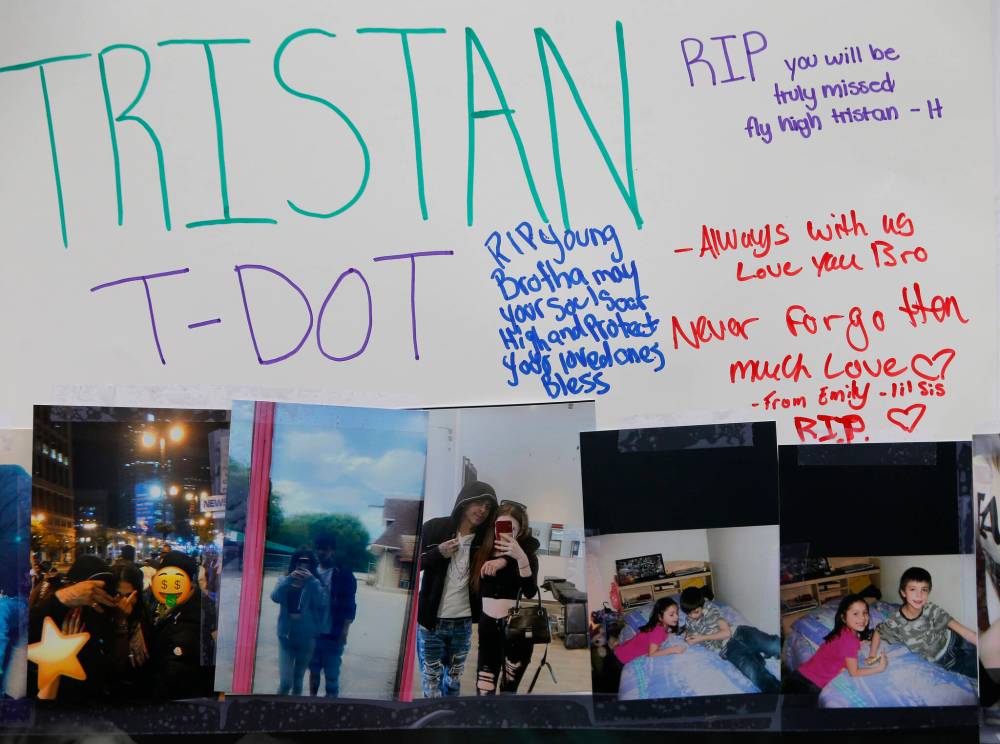 TRISTAN
T-DOT
RIP you will be
truly missed
fly high tristan - H
RIP young
Brotha may
your soul Soar
High and Protect
your loved ones
Bless
- Always with us
Love you Bro
Never Forgotten
much Love ♡
- From Emily - lil Sis
R.I.P. ♡
NEWS